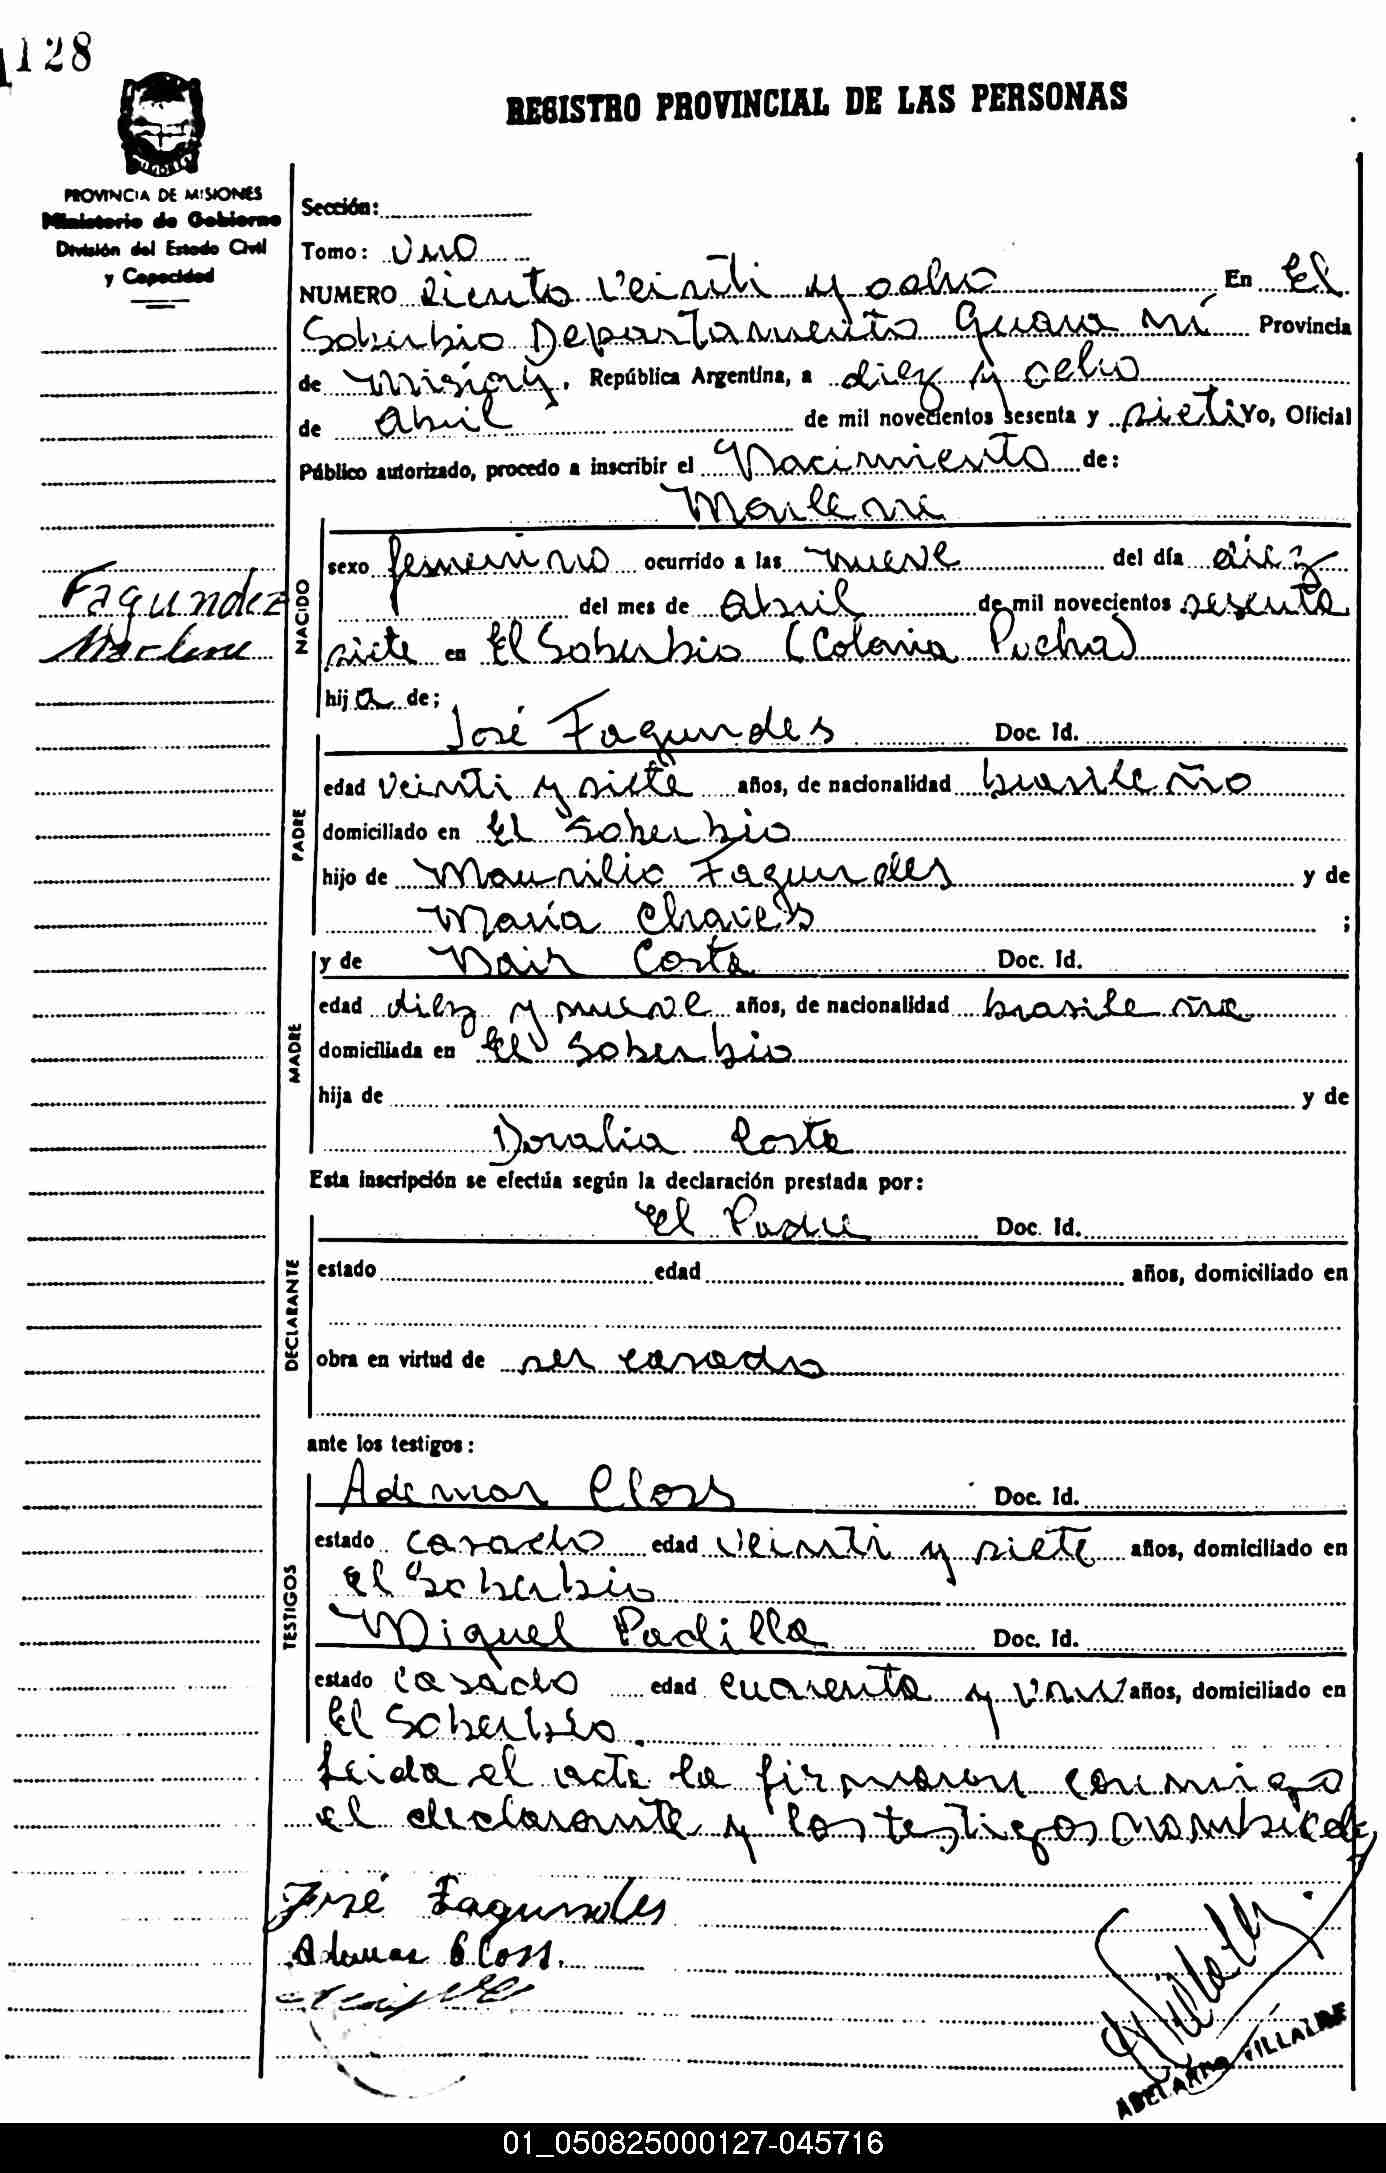 128
REGISTRO PROVINCIAL DE LAS PERSONAS
PROVINCIA DE MISIONES
Ministerio de Gobierno
División del Estado Civil
y Capacidad
Sección:
Tomo: Uno
NUMERO ciento Veinti y ocho En El
Soberbio Departamento Guaraní Provincia
de Misiones, República Argentina, a diez y ocho
de Abril de mil novecientos sesenta y siete Yo, Oficial
Público autorizado, procedo a inscribir el Nacimiento de:
Marlene
NACIDO
sexo femenino ocurrido a las nueve del día diez
Fagundez
del mes de Abril de mil novecientos sesenta
Marlene
siete en El Soberbio (Colonia Pucha)
hija de;
José Fagundes Doc. Id.
PADRE
edad veinti y siete años, de nacionalidad brasileño
domiciliado en El Soberbio
hijo de Maurilio Fagundes y de
María Chaves ;
y de Nair Costa Doc. Id.
MADRE
edad diez y nueve años, de nacionalidad brasileña
domiciliada en El Soberbio
hija de y de
Doralia Costa
Esta inscripción se efectúa según la declaración prestada por:
El Padre Doc. Id.
DECLARANTE
estado edad años, domiciliado en
obra en virtud de ser casado
ante los testigos:
Ademar Closs Doc. Id.
TESTIGOS
estado casado edad veinti y siete años, domiciliado en
El Soberbio
Miguel Padilla Doc. Id.
estado casado edad cuarenta y uno años, domiciliado en
El Soberbio.
Leida el acta la firmaron conmigo
el declarante y los testigos nombrados
José Fagundes
Ademar Closs.
ABELARDO VILLALBE
01_050825000127-045716